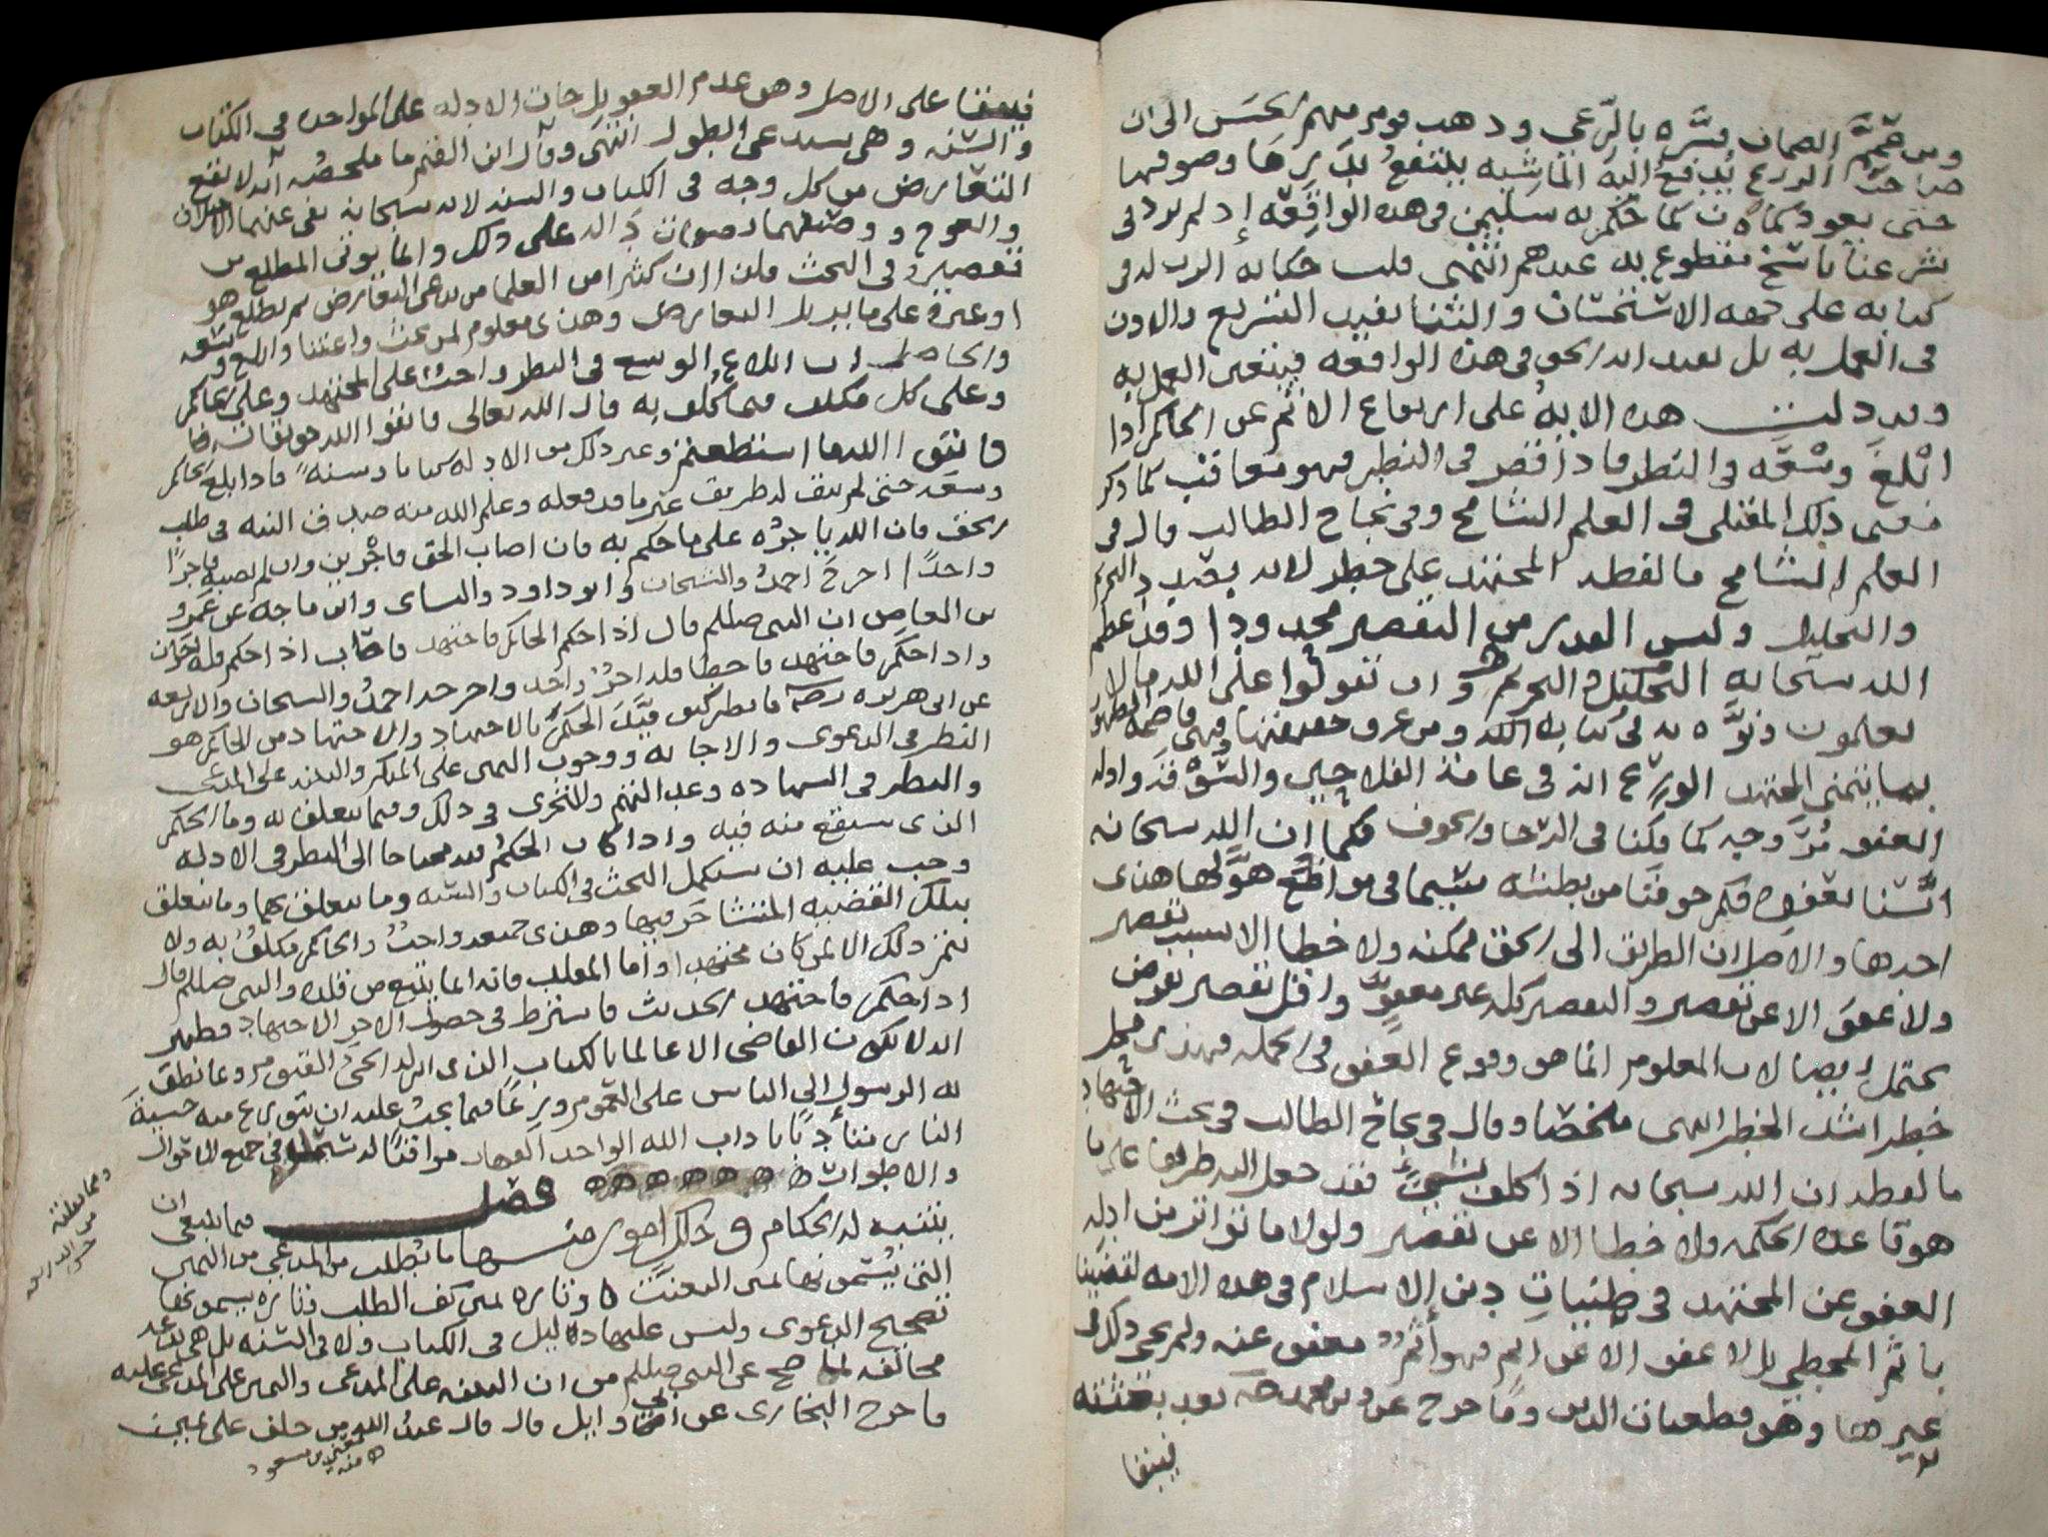 ومن ضمن الضمان فسره بالرعي وذهب قوم منهم الحسن الى ان
صاحب الزرع تدفع اليه الماشيه ينتفع بدرها وصوفها
حتى يعود كما كان كما حكم به سليمن في هذه الواقعه إذ لم يرد في
شرعنا ناسخ مقطوع به عندهم انتهى قلت حكايه الرب له في
كتابه على جهه الاستحسان والثنا تفيد التشريع والاذن
في العمل به بل تفيد انه الحق في هذه الواقعه فيتعين العمل به
وقد دلت هذه الايه على ارتفاع الاثم عن الحاكم اذا
ابلغ وسعه في النظر فاذا قصر في النظر فهو معاقب كما ذكر
معنى ذلك المقبلي في العلم الشامخ وفي نجاح الطالب قال في
العلم الشامخ ما لفظه المجتهد على خطر لانه بصدد التحريم
والتحليل وليس القدر من التقصير محدودا وقد عظم
الله سبحانه التحليل والتحريم وان تقولوا على الله ما لا
تعلمون ونوه به في كتابه الله ومن عرف حقيقتها فهي قاصمة الظهر
بها يتمنى المجتهد الورع انه في عامة الفلاحين والسوقه وادله
العفو مروحه كما قلنا في الرجا والخوف فكما ان الله سبحانه
انسنا بعفوه فكم خوفنا من بطشه سيما في مواضع هولها هذي
احدها والاصل ان الطريق الى الحق ممكنه ولا خطا الا بسبب تقصير
ولا عفو الا عن تقصير والتقصير كله غير معفو واقل تقصير يفرض
يحتمل ايضا لان المعلوم انما هو وقوع العفو في الجمله فهذي محل
خطر اشد الخطر انتهى ملخصا وقال في نجاح الطالب في بحث الاجتهاد
ما لفظه ان الله سبحانه اذا كلف بشيء فقد جعل اليه طريقا على ما
هو قاعده الحكمه ولا خطا الا عن تقصير ولولا ما تواتر من ادله
العفو عن المجتهد في ظنيات دين الاسلام في هذه الامه لقضينا
باثم المخطي بل لا عفو الا عن اثم فهو آثم معفو عنه ولم يجي ذلك في
غيرها وهو قطعيات الدين وما خرج عن دين محمد صلى بعد بعثته
فبقينا
فبقينا على الاصل وهو عدم العفو بل جات الادله على المواخذه في الكتاب
والسنه وهي يستدعي البطول انتهى وقال ابن القيم ما ملخصه انه لا يقع
التعارض من كل وجه في الكتاب والسنه لانه سبحانه نفى عنهما الاختلاف
والعوج ووصفهما بصفات دالة على ذلك وانما يوتى المطلع من
تقصيره في البحث قلت ان كثيرا من العلما من يدعي التعارض ثم يطلع هو
او غيره على ما يزيل التعارض وهذي معلوم لمن بحث واعتنا وابلغ وسعه
والحاصل ان ابلاغ الوسع في النظر واجب على المجتهد وعلى الحاكم
وعلى كل مكلف فيما كلف به قال الله تعالى فاتقوا الله حق تقاته
فاتقوا الله ما استطعتم وغير ذلك من الادله كتابا وسنة فاذا ابلغ الحاكم
وسعه حتى لم يبق له طريق غير ما قد فعله وعلم الله منه صدق النيه في طلب
الحق فان الله ياجره على ما حكم به فان اصاب الحق فاجرين وان لم يصبه فاجرا
واحدا اخرج احمد والشيخان وابو داود والنساى وابن ماجه عن عمرو
بن العاص ان النبي صللم قال اذا حكم الحاكم فاجتهد فاصاب اذا حكم فله اجران
واذا حكم فاجتهد فاخطا فله اجر واحد واخرجه احمد والشيخان والاربعه
عن ابي هريره رضه فانظر كيف قيد الحكم بالاجتهاد والاجتهاد من الحاكم هو
النظر في الدعوى والاجابه ووجوب اليمين على المنكر والبينه على المدعي
والنظر في الشهاده وعدالتهم والتحرى في ذلك وفيما يتعلق به وما الحكم
الذى سيقع منه فيه واذا كان الحكم محتاجا الى النظر في الادله
وجب عليه ان يستكمل البحث في الكتاب والسنه وما يتعلق بهما وما يتعلق
بتلك القضيه المتشاجر فيها وهذى جميعه واجب والحاكم مكلف به ولا
يتم ذلك الا لمن كان مجتهدا واما المقلد فانه انما يتبع من قلده والنبي صللم قال
اذا حكم فاجتهد الحديث فاشترط في حصول الاجر الاجتهاد فظهر
انه لا يكون القاضي الا عالما بالكتاب الذى انزله الحي القيوم وما نطق
به الرسول الى الناس على العموم ورعا فيما يجب عليه ان يتورع منه خشية
الناس متأدبا باداب الله الواحد القهار مراقبا له سبحانه في جميع الاقوال
والاطوار ه ه ه ه ه ه ه فصل فيما ينبغي ان
يتنبه له الحكام وذلك امور منها ما يطلب من المدعي من اليمين
التي يسمونها يمين التعنت وتاره يمين كف الطلب وتاره يسمونها
تصحيح الدعوى وليس عليها دليل في الكتاب ولا في السنه بل هي بدعه
مخالفه لما صح عن النبي صللم من ان البينه على المدعي واليمين على المدعى عليه
فاخرج البخارى عن ابي وايل قال قال عبد الله من حلف على يمين